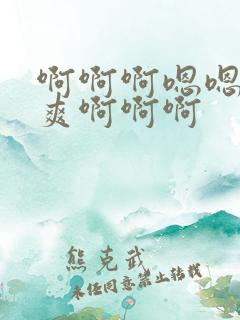 啊啊啊嗯嗯
爽啊啊啊
熊克武
未经同意禁止转载